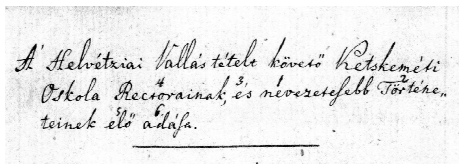 A' Helvétziai Vallástételt követő Ketskeméti
Oskola Rectorainak, és nevezetesebb Történe„
teinek elő adása.